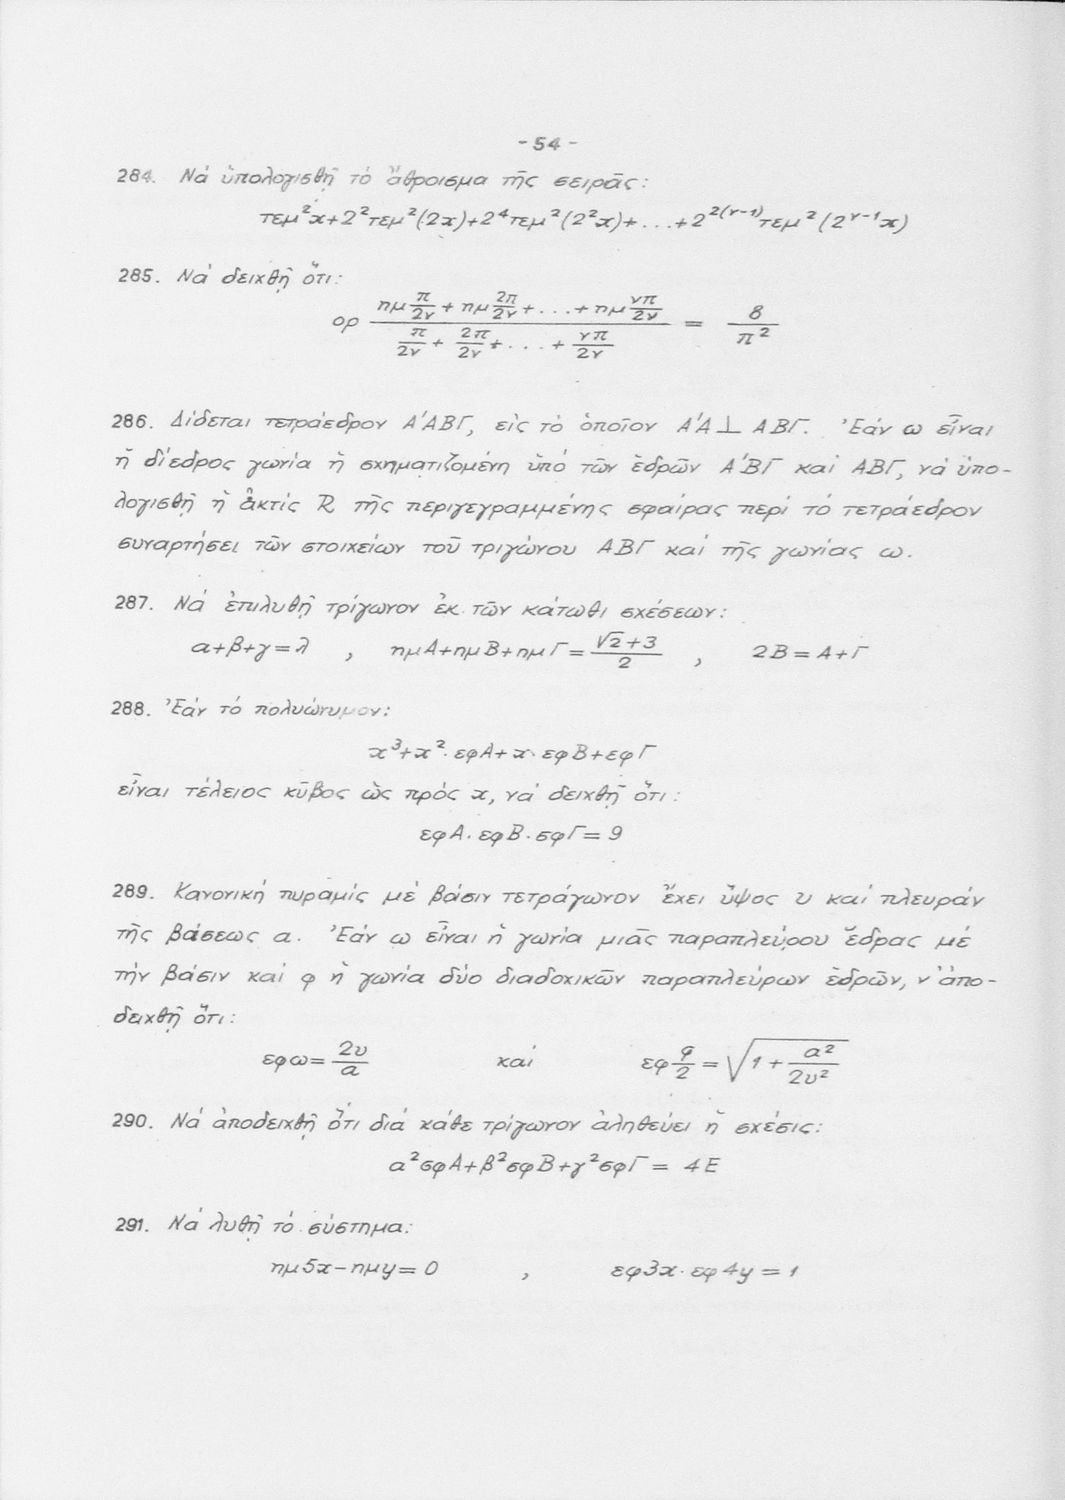 - 54 -
284. Νά ὑπολογισθῇ τό ἄθροισμα τῆς σειρᾶς:
τεμ²x+2²τεμ²(2x)+2⁴τεμ²(2²x)+...+2²⁽ᵛ⁻¹⁾τεμ²(2ᵛ⁻¹x)
285. Νά δειχθῇ ὅτι:
ορ (ημ π/2ν + ημ 2π/2ν + ... + ημ νπ/2ν) / (π/2ν + 2π/2ν + ... + νπ/2ν) = 8/π²
286. Δίδεται τετράεδρον Α΄ΑΒΓ, εἰς τό ὁποῖον Α΄Α⊥ΑΒΓ. Ἐάν ω εἶναι
ἡ δίεδρος γωνία ἡ σχηματιζομένη ὑπό τῶν ἑδρῶν Α΄ΒΓ καί ΑΒΓ, νά ὑπο-
λογισθῇ ἡ ἀκτίς R τῆς περιγεγραμμένης σφαίρας περί τό τετράεδρον
συναρτήσει τῶν στοιχείων τοῦ τριγώνου ΑΒΓ καί τῆς γωνίας ω.
287. Νά ἐπιλυθῇ τρίγωνον ἐκ τῶν κάτωθι σχέσεων:
α+β+γ=λ , ημΑ+ημΒ+ημΓ=(√2+3)/2 , 2Β=Α+Γ
288. Ἐάν τό πολυώνυμον:
x³+x²·εφΑ+x·εφΒ+εφΓ
εἶναι τέλειος κῦβος ὡς πρός x, νά δειχθῇ ὅτι:
εφΑ·εφΒ·σφΓ=9
289. Κανονική πυραμίς μέ βάσιν τετράγωνον ἔχει ὕψος υ καί πλευράν
τῆς βάσεως α. Ἐάν ω εἶναι ἡ γωνία μιᾶς παραπλεύρου ἕδρας μέ
τήν βάσιν καί φ ἡ γωνία δύο διαδοχικῶν παραπλεύρων ἑδρῶν, ν᾿ ἀπο-
δειχθῇ ὅτι:
εφω=2υ/α καί εφ φ/2 = √(1+α²/2υ²)
290. Νά ἀποδειχθῇ ὅτι διά κάθε τρίγωνον ἀληθεύει ἡ σχέσις:
α²σφΑ+β²σφΒ+γ²σφΓ = 4Ε
291. Νά λυθῇ τό σύστημα:
ημ5x-ημy=0 , εφ3x·εφ4y=1